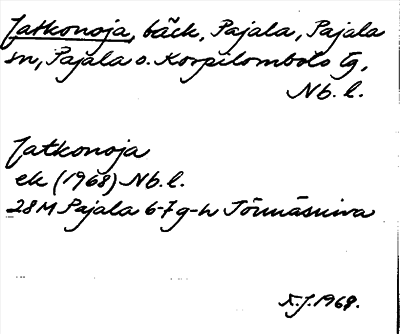 Jatkonoja, bäck, Pajala, Pajala
sn, Pajala o. Korpilombolo tg,
Nb. l.
Jatkonoja
ek (1968) Nb. l.
28M Pajala 6-7 g-h Jönnäsuiva
K.J. 1968.